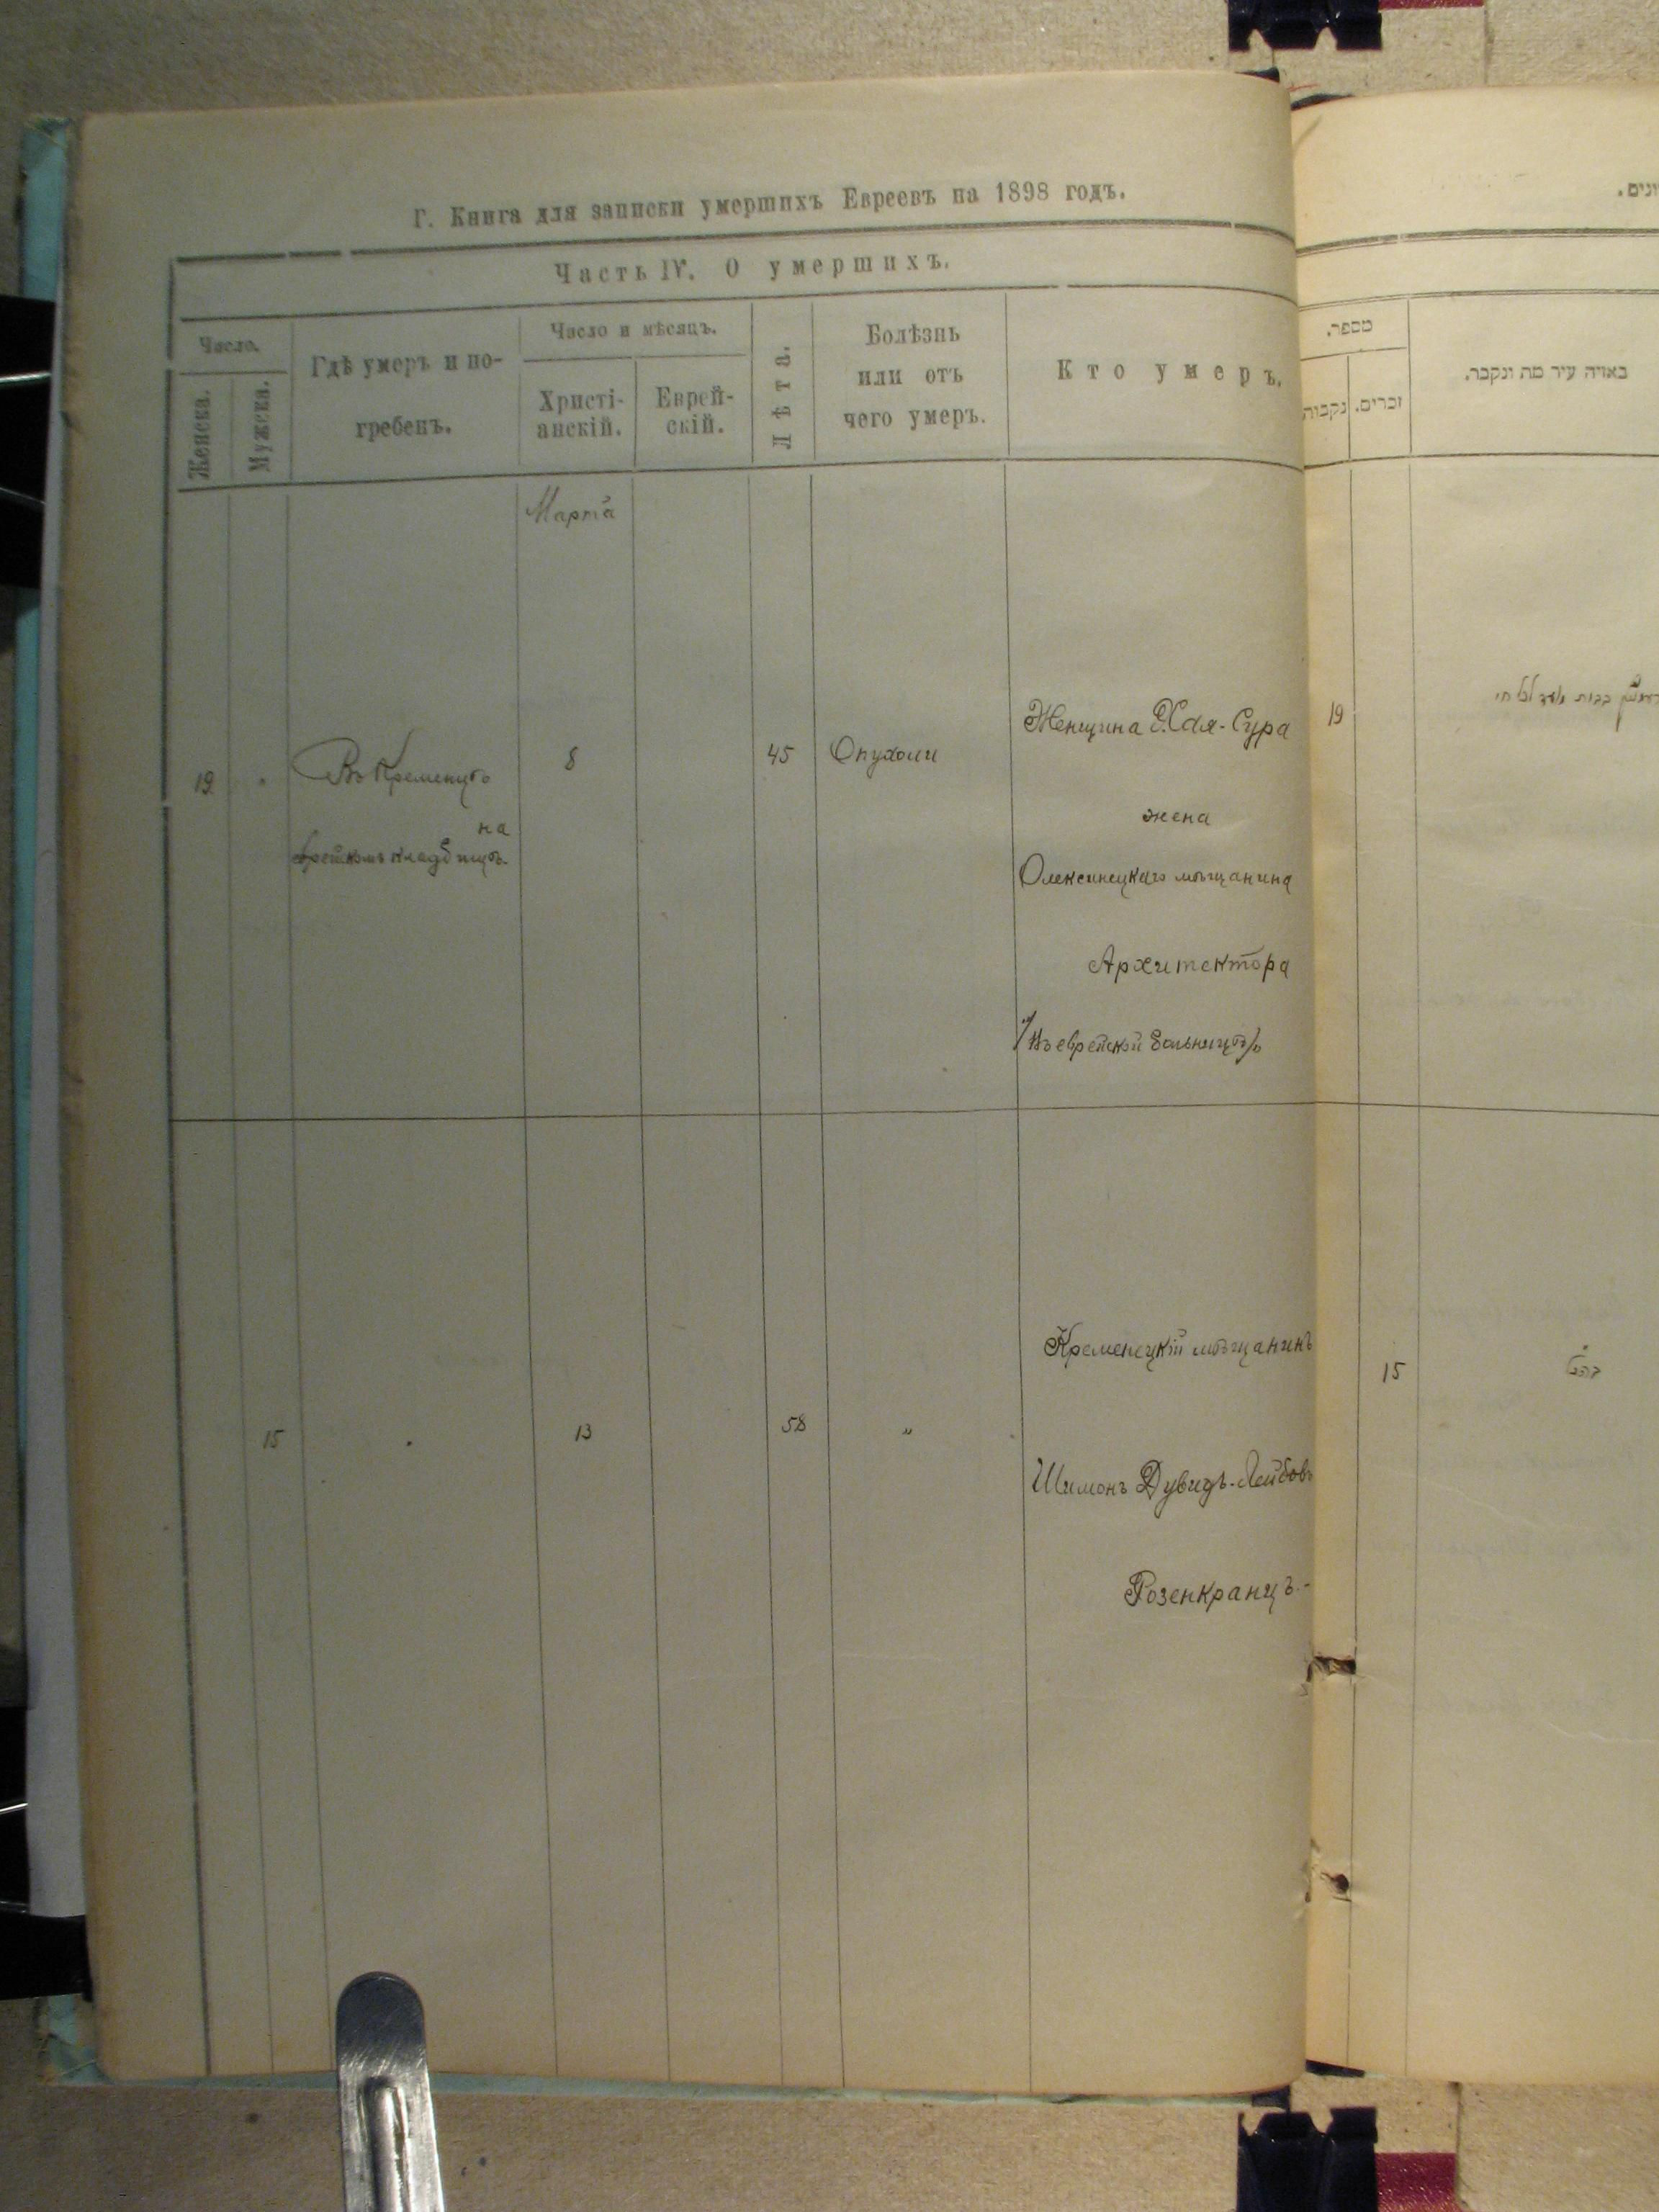 Г. Книга для записки умершихъ Евреевъ на 1898 годъ.
Часть IV. О умершихъ.
Число.
Женска.
Мужеска.
Гдѣ умеръ и по-
гребенъ.
Число и мѣсяцъ.
Христі-
анскій.
Еврей-
скій.
Лѣта.
Болѣзнь
или отъ
чего умеръ.
Кто умеръ.
Марта
19
Въ Кременцѣ
на
еврейскомъ кладбищѣ
8
45
Опухоли
Женщина Хая-Сура
жена
Олексинецкаго мѣщанина
Архитектора
/Въ еврейской больницѣ/
15
13
58
"
Кременецкій мѣщанинъ
Шимонъ Дувидъ-Лейбовъ
Розенкранцъ.-
מספר.
נקבות
זכרים.
באיזה עיר מת ונקבר.
19
15